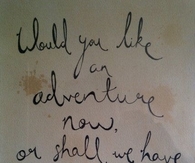 Would you like
an
adventure
now,
or shall we have